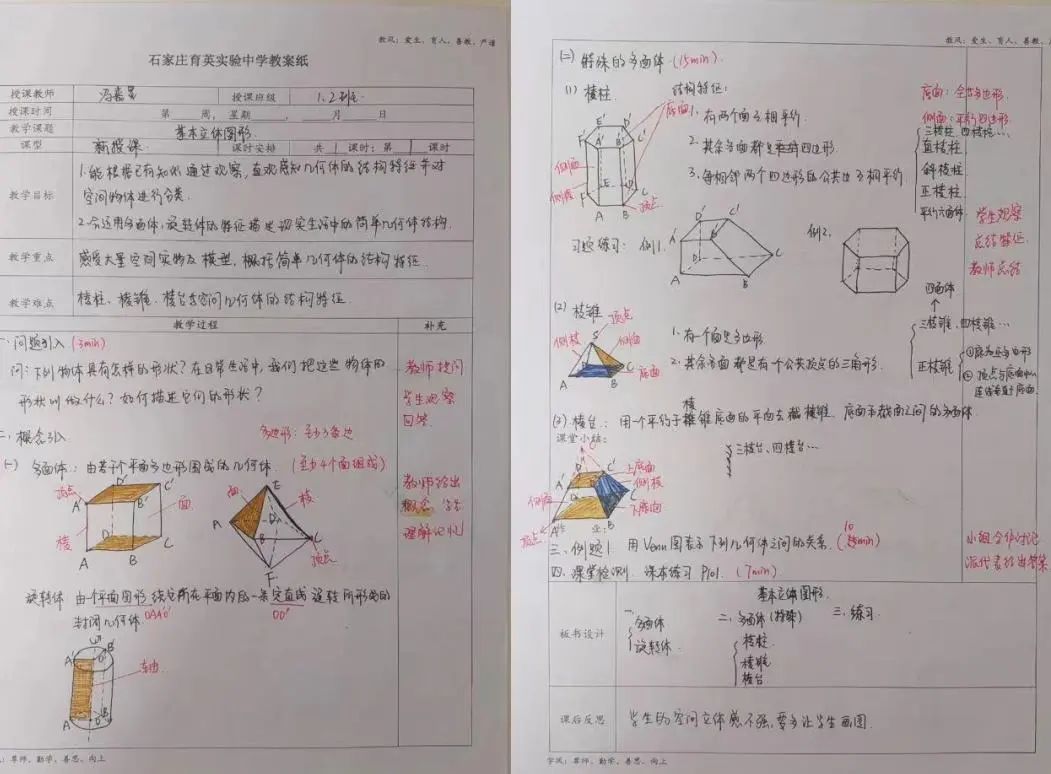 教风：爱生、育人、善教、严谨
石家庄育英实验中学教案纸
授课教师 冯嘉 授课班级 1、2班
授课时间 第 周，星期 ， 月 日
教学课题 基本立体图形
课型 新授课 课时安排 共 课时：第 课时
教学目标
1.能根据已有知识通过观察，直观感知几何体的结构特征并对
空间物体进行分类.
2.会运用多面体、旋转体的特征描述现实生活中的简单几何体结构.
教学重点 感受大量空间实物及模型，概括简单几何体的结构特征.
教学难点 棱柱、棱锥、棱台等空间几何体的结构特征
教学过程 补充
一、问题引入 (3min)
问：下列物体具有怎样的形状？在日常生活中，我们把这些物体的
形状叫做什么？如何描述它们的形状？
教师提问
学生观察
回答
二、概念引入 多边形：至少3条边
(一) 多面体：由若干个平面多边形围成的几何体. (至少4个面组成)
教师给出
概念 学生
理解记忆
顶点 D' C' A' B' 面 棱 D C A B
面 E 棱 A D B C 顶点 F
旋转体 由一个平面图形绕它所在平面内的一条定直线旋转所形成的
封闭几何体. OAA'O' OO'
A' O' B' 轴 A O B
学风：尊师、勤学、善思、向上
教风：爱生、育人、善教、严
(二) 特殊的多面体 (15min)
(1) 棱柱 结构特征：
底面：全等多边形
侧面：平行四边形
1. 有两个面互相平行
2. 其余各面都是四边形.
3. 每相邻两个四边形的公共边互相平行
三棱柱、四棱柱…
直棱柱
斜棱柱
正棱柱
平行六面体
学生观察
总结特征
教师总结
E' D' F' A' B' 底面 侧面 侧棱 F E D C A B 顶点
习题练习：例1. 例2.
D' C' A' B' D C A B
(2) 棱锥 顶点
S 侧棱 侧面 D C 底面 A B
1. 有一个面是多边形.
2. 其余各面都是有一个公共顶点的三角形.
四面体
三棱锥、四棱锥…
正棱锥
①底为正多边形
② 顶点与底面中心
连线垂直于底面
(3) 棱台：用一个平行于棱锥底面的平面去截棱锥，底面和截面之间的多面体
课堂小结：
三棱台、四棱台…
D' C' 上底面 A' B' 侧棱 侧面 C 下底面 顶点 A B
三、例题1 用Venn图表示下列几何体之间的关系. (10min)
四、课堂检测 课本练习 P101. (7min)
小组合作讨论
派代表给出答案
板书设计
基本立体图形.
一、多面体
旋转体
二、多面体(特殊)
棱柱
棱锥
棱台
三、练习.
课后反思 学生的空间立体感不强，要多让学生画图.
学风：尊师、勤学、善思、向上